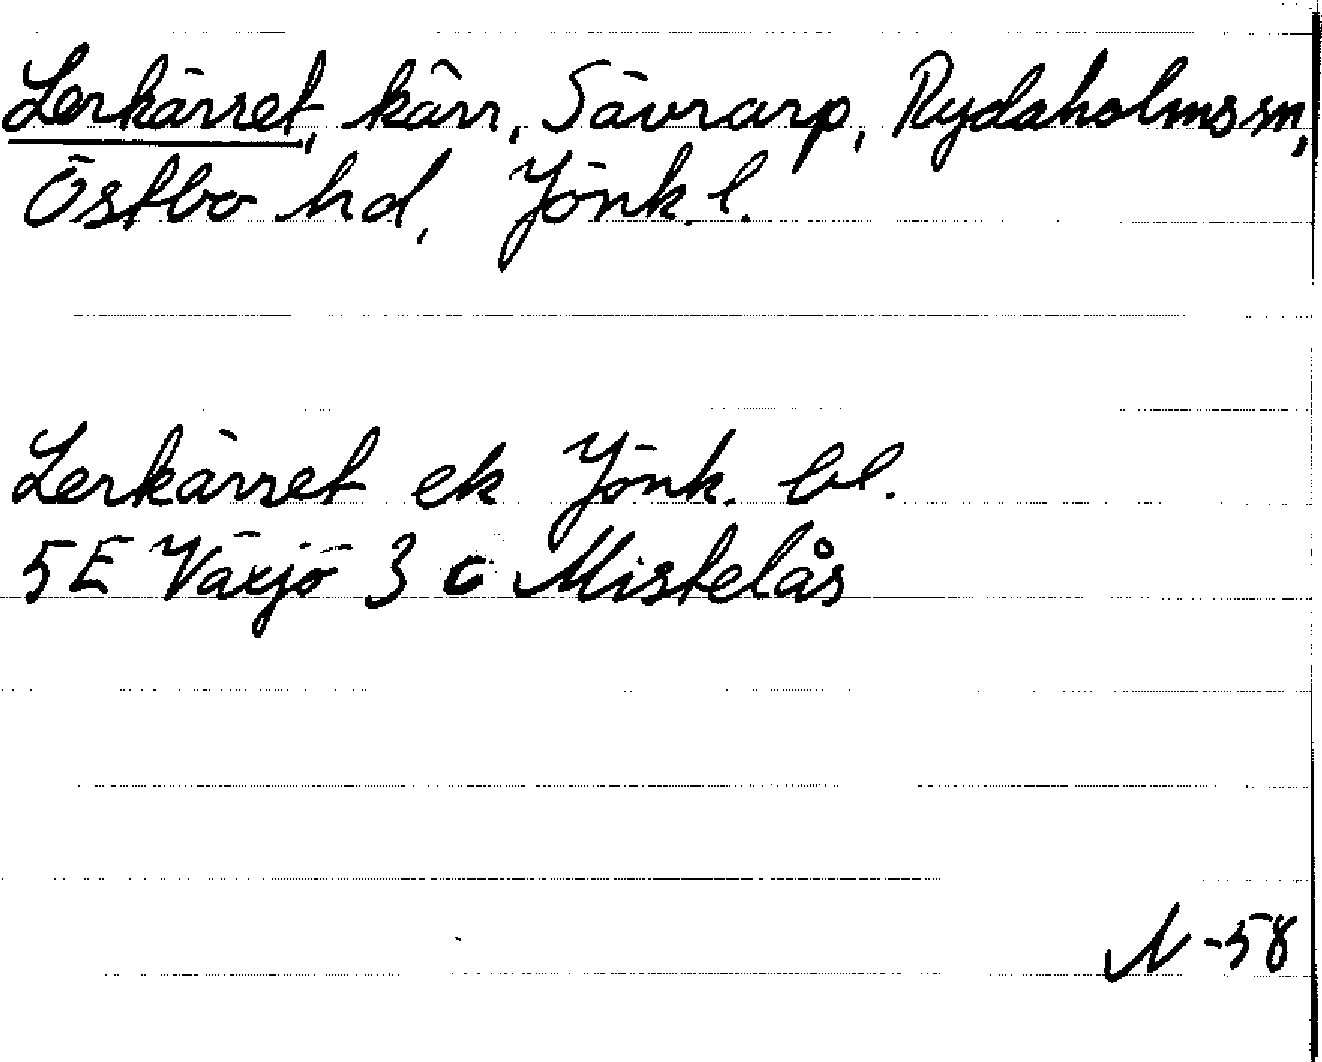 Lerkärret, kärr, Sävrarp, Rydaholms sn,
Östbo hd, Jönk. l.
Lerkärret ek Jönk. bl.
5E Växjö 3 c Mistelås
N -58